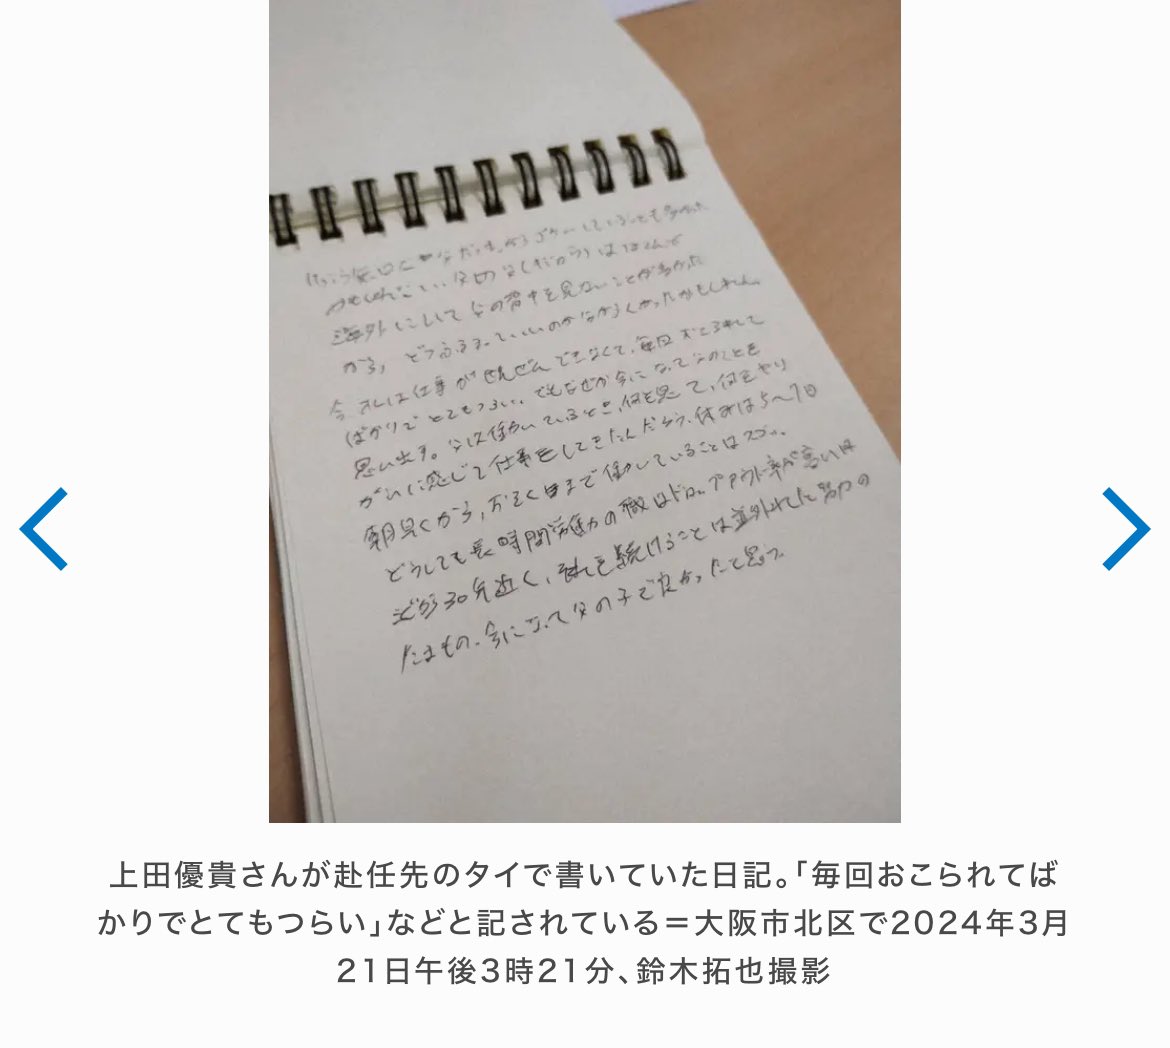 海外にいて父の背中を見ないことが多かった
から、どうふるまっていいのかわからなかったかもしれん。
今オレは仕事がぜんぜんできなくて、毎回おこられて
ばかりでとてもつらい。でもなぜか今になって父のことを
思い出す。父は働いているとき、何を思って、何をやり
がいに感じて仕事をしてきたんだろう。休みは5〜7日
朝早くから、おそくまで働いていることはスゴい。
どうしても長時間労働の職はドロップアウト率が高いは
ずだから30年近く、それを続けることは並外れた努力の
たまもの。今になって父の子で良かったと思う。
上田優貴さんが赴任先のタイで書いていた日記。「毎回おこられてば
かりでとてもつらい」などと記されている＝大阪市北区で2024年3月
21日午後3時21分、鈴木拓也撮影